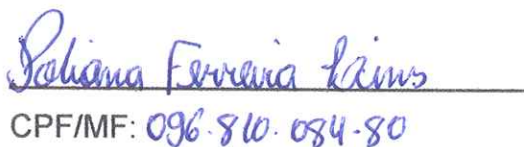 Poliana Ferreira Lains
CPF/MF: 096.810.084-80